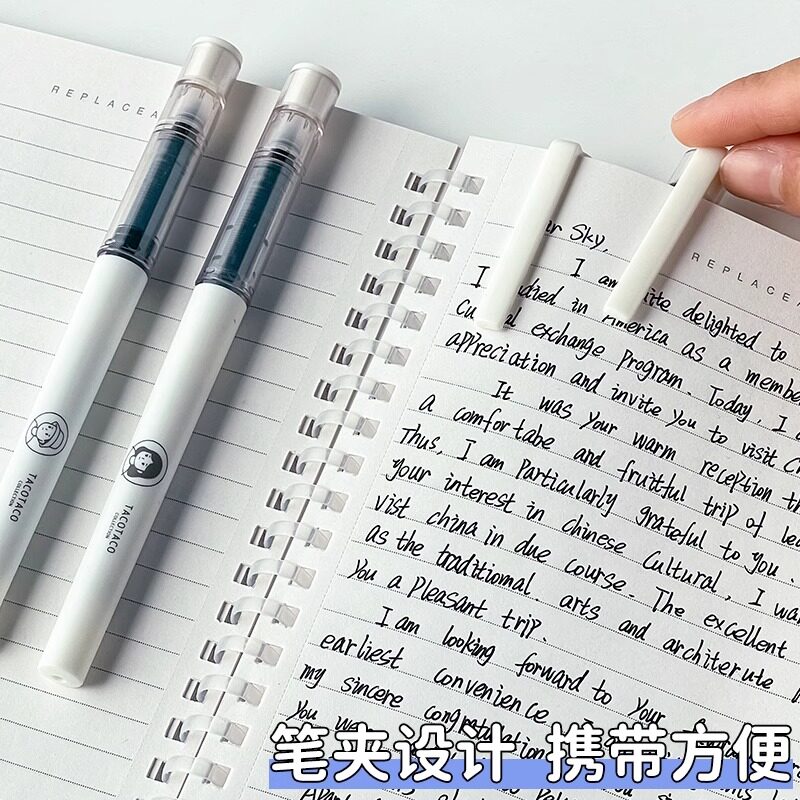 REPLACEA
REPLACEA
TACOTACO
COLLECTION
TACOTACO
COLLECTION
Sky,
I am delighted to
I in America as a membe
exchange program. Today, I
appreciation and invite you to visit
It was your warm reception th
a comfortabe and fruitful trip of lea
Thus, I am particularly grateful to you.
your interest in chinese cultural, I wa
vist china in due course. The excellent
as the traditional. arts and architerute
you a pleasant trip.
I am looking forward to your
earliest convenience
my sincere congratulation
You
笔夹设计 携带方便